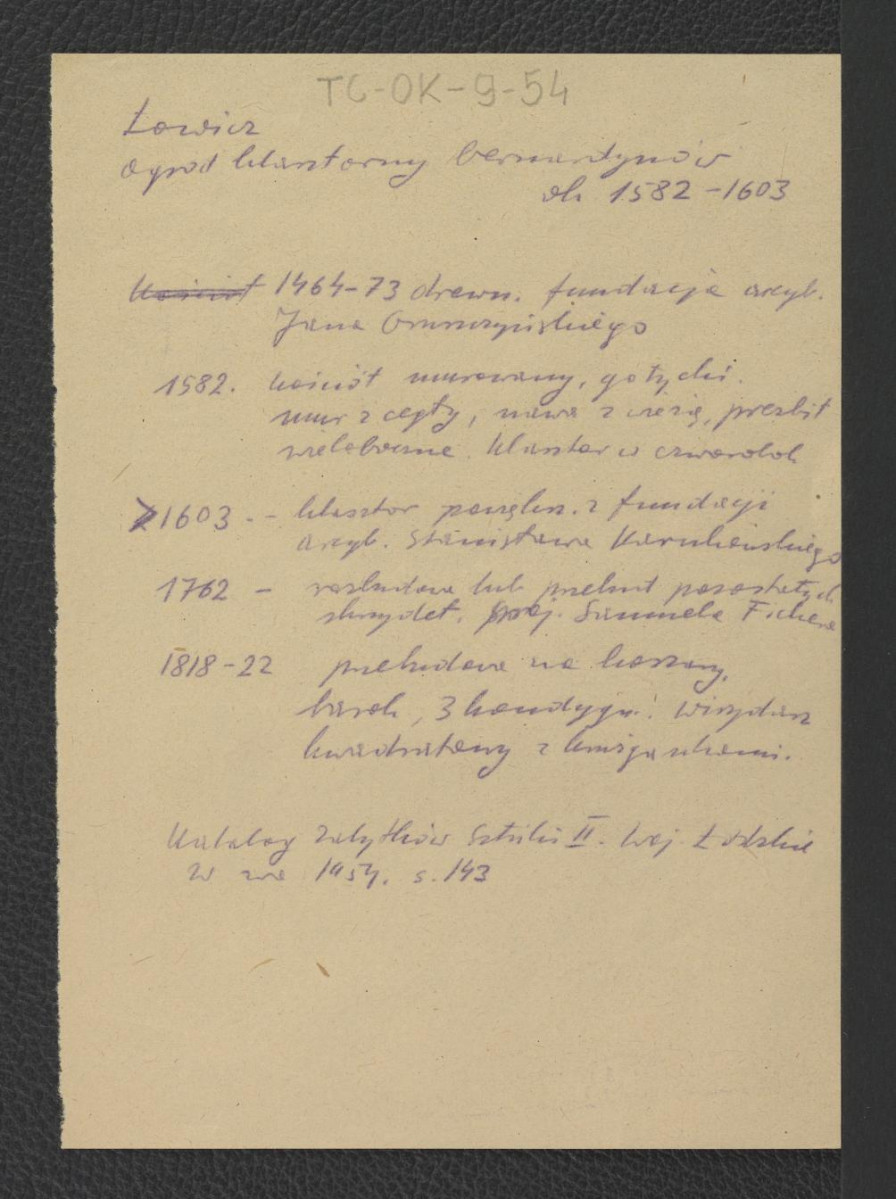 TG-OK-9-54
Łowicz
ogród klasztorny bernardynów
ok 1582-1603
Kościół 1464-73 drewn. fundacja arcyb.
Jana Gruszczyńskiego
1582. kościół murowany, gotycki.
mur z cegły, nawa z wieżą, prezbit
wieloboczne. Klasztor w czworobok
1603. - klasztor powiększ. z fundacji
arcyb. Stanisława Karnkowskiego
1762 - rozbudowa lub przebud pozostałych
skrzydeł. proj. Samuela Fichera
1818-22 przebudowa na koszary.
barok, 3 kondygn. Wirydarz
kwadratowy z krużgankami.
Katalog Zabytków Sztuki II. Woj. Łódzkie
W-wa 1954. s. 143